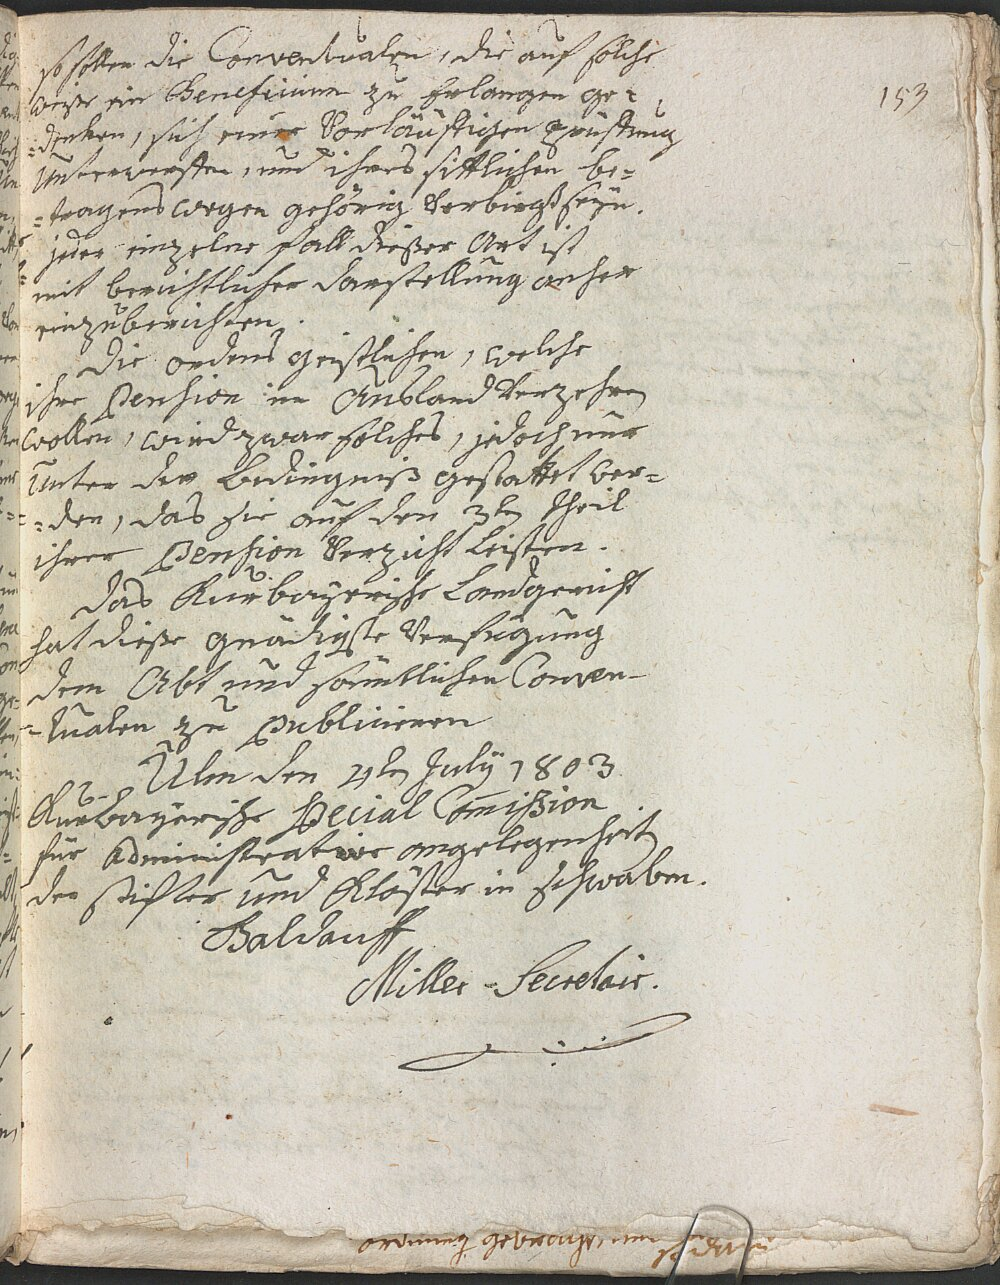 153
so sollen die Conventualen, die auf solche
weise ein Beneficium zu erlangen ge-
-denken, sich einer Vorläuftigen prüfung
Unterwerffen, und ihres sittlichen be-
-tragens wegen gehörig Verbürgt seyn.
jeder einzelne fall dießer Art ist
mit berichtlicher darstellung anher
einzuberichten.
Die ordens geistlichen, welche
ihre Pension im Ausland Verzehren
wollen, wird zwar solches, jedoch nur
Unter der bedingniß gestattet wer-
-den, das sie auf den 3ten theil
ihrer Pension Verzicht Leisten.
das Kurbayerische Landgericht
hat dieße gnädigste Verfügung
dem Abt und sämtlichen Conven-
-tualen zu Publicieren
Ulm den 4ten July 1803
Kurbayerische Special Commißion
für Administrative angelegenheit
der stifter und Klöster in schwaben.
Baldauff
Miller Secretair.
ordnung gebracht, und